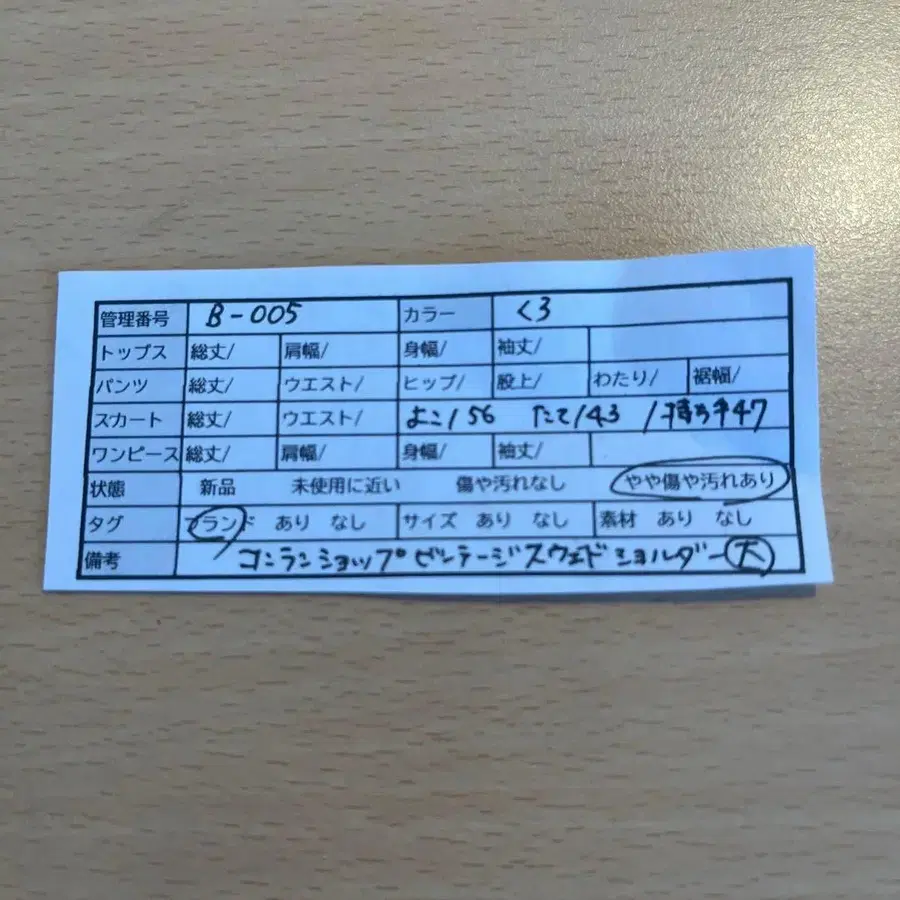 管理番号 B-005 カラー くろ
トップス 総丈/ 肩幅/ 身幅/ 袖丈/
パンツ 総丈/ ウエスト/ ヒップ/ 股上/ わたり/ 裾幅/
スカート 総丈/ ウエスト/ よこ/56 たて/43 /持ち手47
ワンピース 総丈/ 肩幅/ 身幅/ 袖丈/
状態 新品 未使用に近い 傷や汚れなし やや傷や汚れあり
タグ ブランド あり なし サイズ あり なし 素材 あり なし
備考 コンランショップビンテージスウェドショルダー大